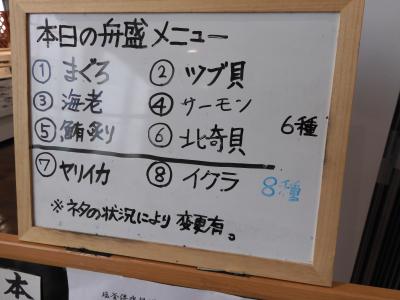 本日の舟盛メニュー
① まぐろ ② ツブ貝
③ 海老 ④ サーモン
⑤ 鮪炙り ⑥ 北奇貝 6種
⑦ ヤリイカ ⑧ イクラ 8種
※ネタの状況により変更有。
本